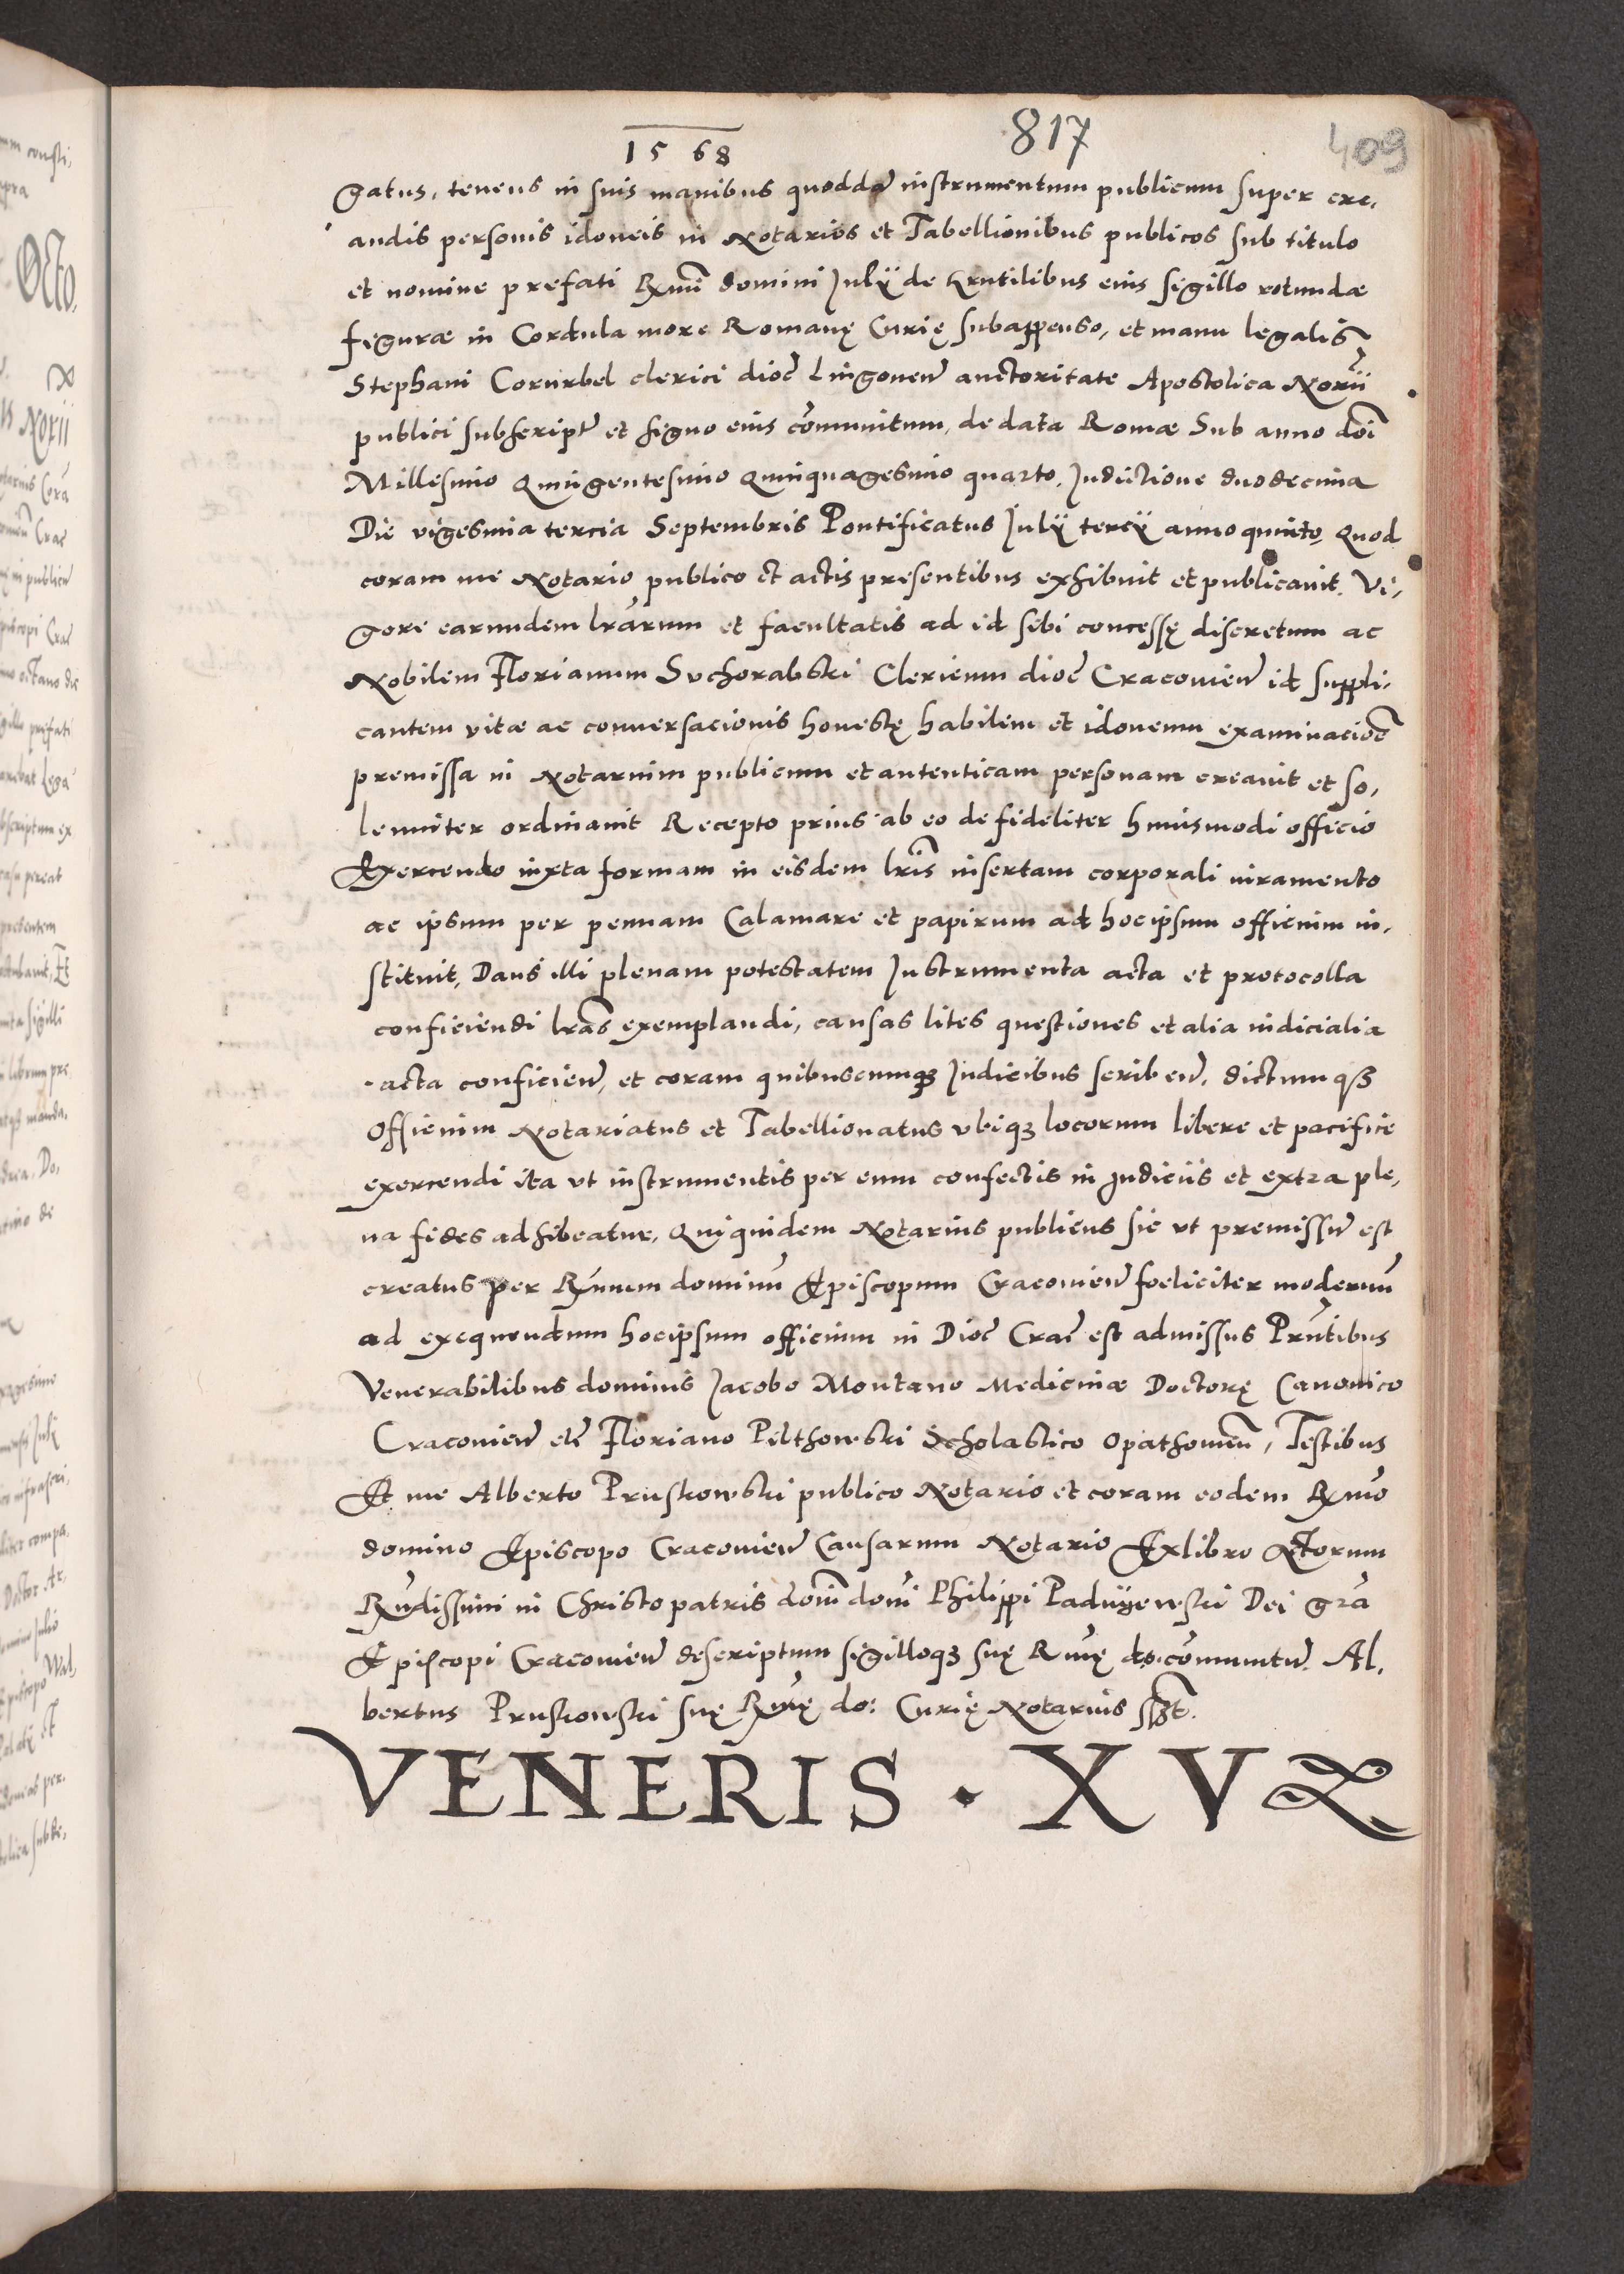 1568
817
409
gatus, tenens in suis manibus quoddā instrumentum publicum super cre,
andis personis idoneis in Notarios et Tabellionibus publicos sub titulo
et nomine prefati Rmi domini Julÿ de Grutilibus eius sigillo rotundæ
figuræ in Cordula more Romanę Curię subappenso, et manu legalis
Stephani Corurbel clerici dioc̄ Lingonen̄ auctoritate Apostolica Norii
publici subscript̄ et signo eius cōmunitum, de data Romæ Sub anno doī
Millesimo Quingentesimo Quinquagesimo quarto, Indictione duodecima
Die vigesima tercia Septembris Pontificatus Julÿ tercÿ anno quinto, Quod
coram me Notario publico et actis presentibus exhibuit et publicauit. Vi,
gore earundem lrārum et facultatis ad id sibi concessę discretum ac
Nobilem Florianum Suchorabski Clericum dioc̄ Cracouien̄ id suppli,
cantem vitæ ac conuersacionis honestę habilem et idoneum examinacioē
premissa in Notarium publicum et autenticam personam creauit et so,
lenniter ordinauit Recepto prius ab eo de fideliter huiusmodi officio
Exercendo iuxta formam in eisdem lrīs insertam corporali iuramento
ac ipsum per pennam Calamare et papirum ad hocipsum officium in,
stituit, Dans illi plenam potestatem Instrumenta acta et protocolla
conficiendi lrās exemplandi, causas lites questiones et alia iudicialia
acta conficien̄, et coram quibuscumqꝫ Judicibus scriben̄, dictumqꝫ
Officium Notariatus et Tabellionatus vbiqꝫ locorum libere et pacifice
exercendi ita vt instrumentis per eum confectis in judiciis et extra ple,
na fides adhibeatur, Quiquidem Notarius publicus sic vt premissū est
creatus per Rmum dominū Episcopum Cracouien̄ foeliciter modernū
ad exequendum hocipsum officium in Dioc̄ Crac̄ est admissus Prn̄tibus
Venerabilibus dominis Jacobo Montano Medicinæ Doctorę Canonico
Cracouien̄ etc̄ Floriano Pilthowski Scholastico Opathouien̄, Testibus
Et me Alberto Pruskowski publico Notario et coram eodem Rmo
domino Episcopo Cracouien̄ Causarum Notario Ex libro Actorum
Rn̄dissimi in Christo patris domī domī Philippi Paduÿewski Dei gr̄a
Episcopi Cracouien̄ descriptum sigilloqꝫ suę Rmę do. cōmunitū. Al,
bertus Pruskowski suę Rmę do: Curię Notarius sszt.
VENERIS · XVA